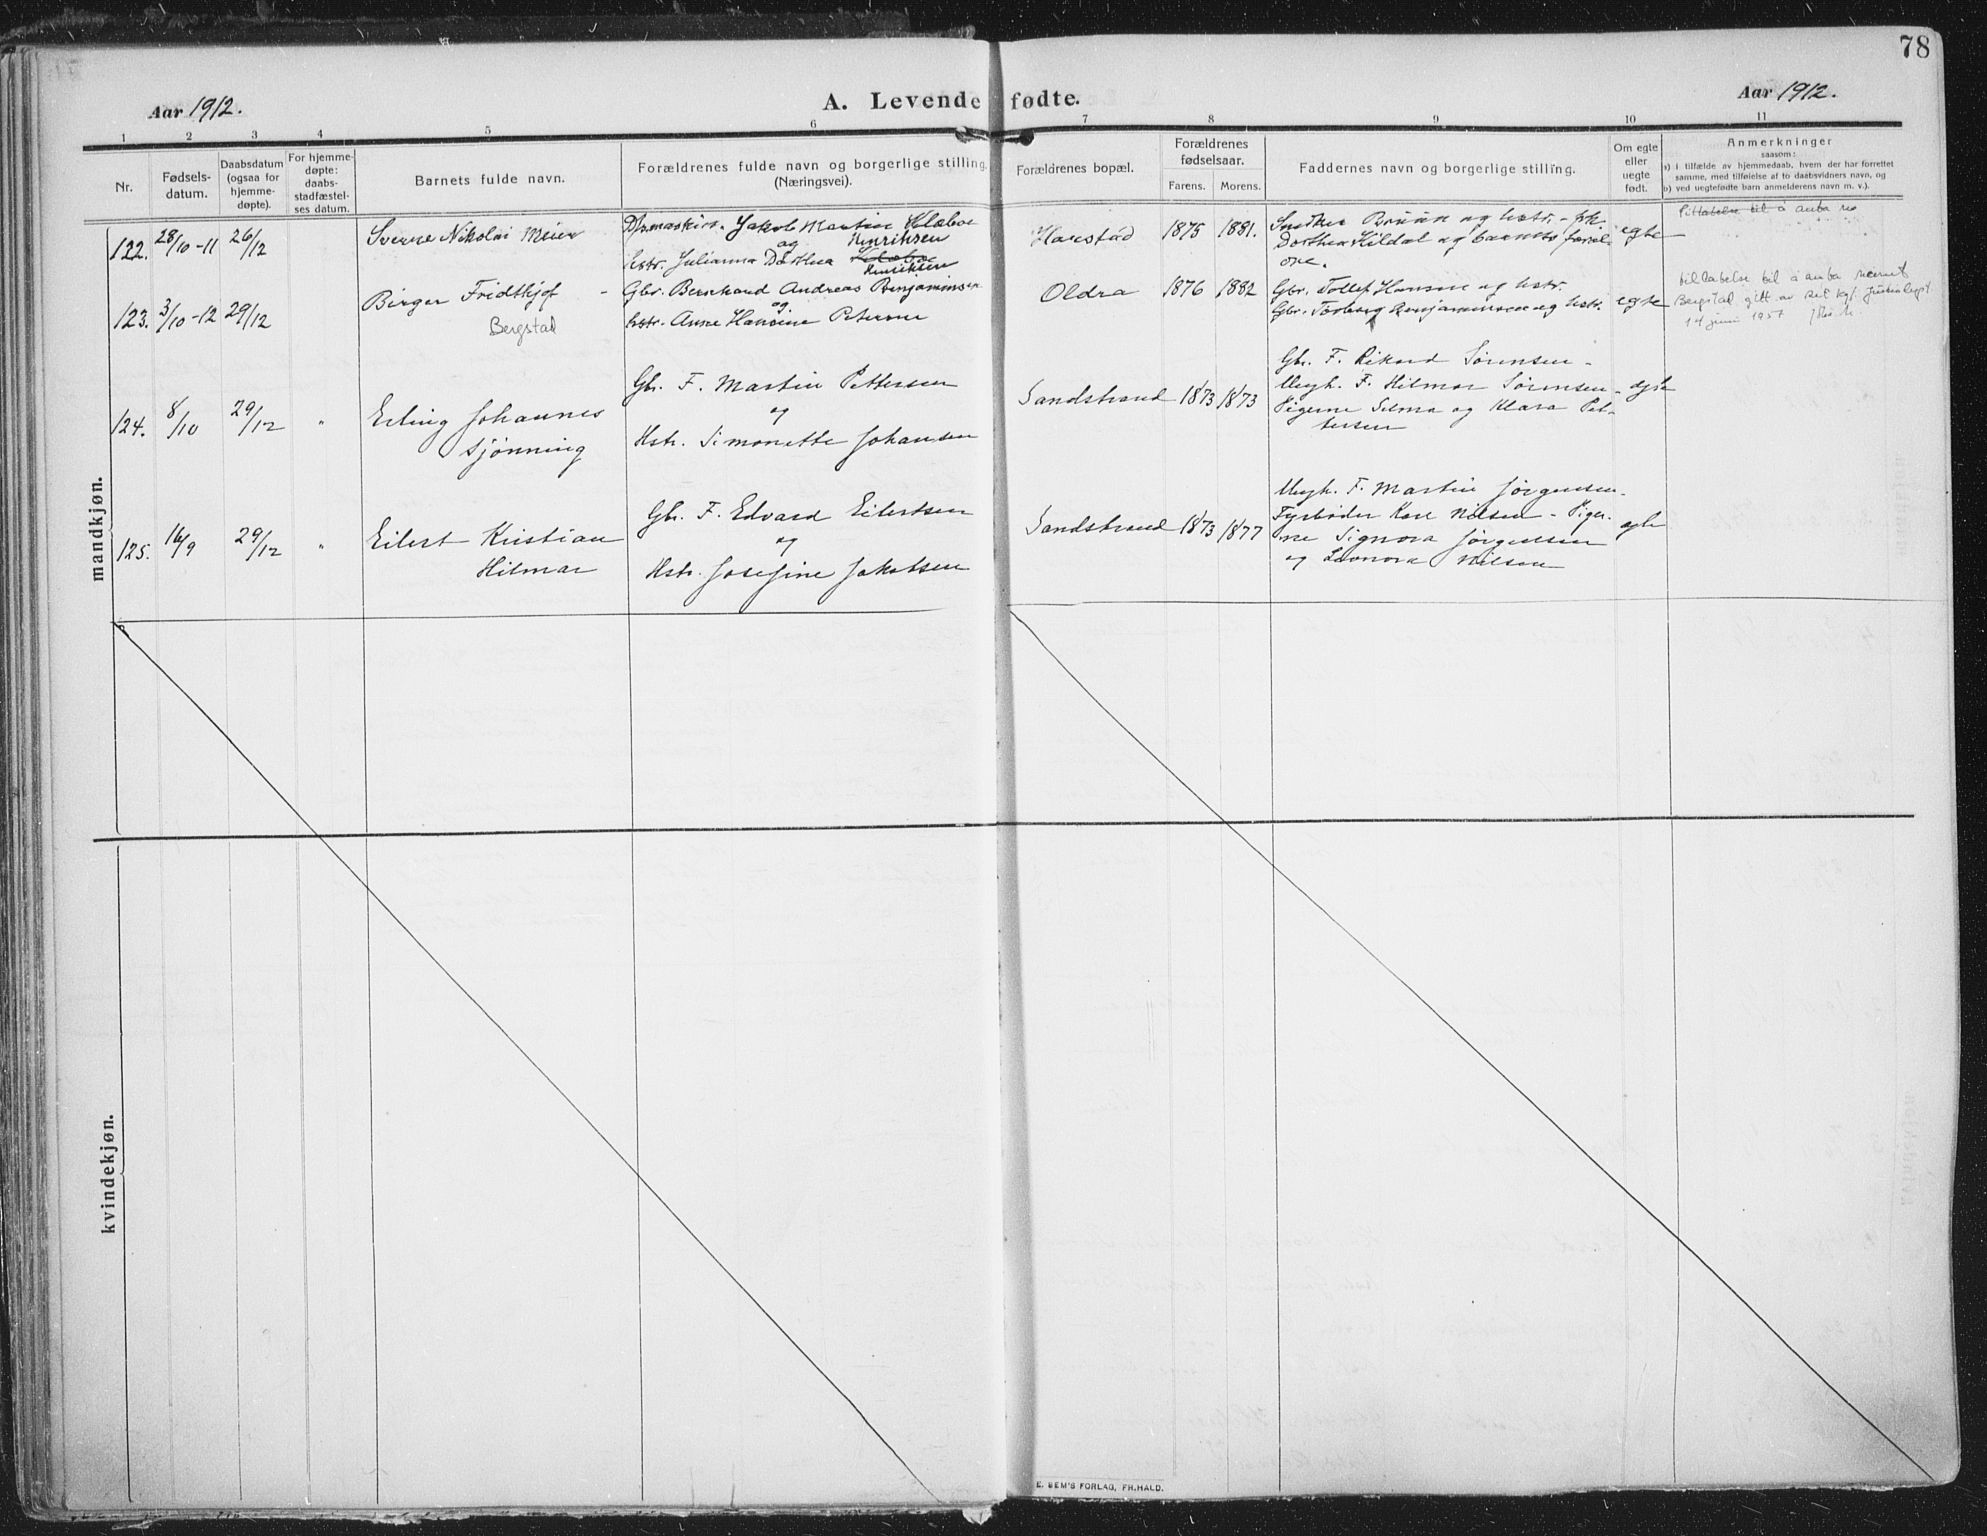 78
Aar 1912.
A. Levende fødte.
Aar 1912.
1 2 3 4 5 6 7 8 9 10 11
Nr.
Fødsels-
datum.
Daabsdatum
(ogsaa for
hjemme-
døpte).
For hjemme-
døpte:
daabs-
stadfæstel-
ses datum.
Barnets fulde navn.
Forældrenes fulde navn og borgerlige stilling.
(Næringsvei).
Forældrenes bopæl.
Forældrenes
fødselsaar.
Farens. Morens.
Faddernes navn og borgerlige stilling.
Om egte
eller
uegte
født.
Anmerkninger
saasom:
a) i tilfælde av hjemmedaab, hvem der har forrettet
samme, med tilføielse af to daabsvidners navn, og
b) ved uegtefødte barn anmelderens navn m. v.).
mandkjøn.
122. 28/10-11 26/12
Sverre Nikolai Meier
Jakob Martin Klæboe
Henriksen
og
hstr. Julianna Dorthea Klæboe
Henriksen
Harstad
1875 1881.
Snedker Bruun og hstr. - frk.
Dorthea Kildal og barnets foræl-
dre.
egte
Tillatelse til å anta
123. 3/10-12 29/12
Birger Fridthjof -
Bergstad
Gbr. Bernhard Andreas Benjaminsen
og
hstr. Anne Hansine Petersen
Oldra
1876 1882
Gbr. Tollef Hansen og hstr.
Gbr. Torberg Benjaminsen og hstr.
egte
tillatelse til å anta navnet
Bergstad gitt av det kgl. justisdept
14 juni 1957
124. 8/10 29/12 "
Erling Johannes
Sjønning
Gbr. F. Martin Pettersen
og
Hstr. Simonette Johansen
Sandstrand
1873 1873
Gbr. F. Rikard Sørensen -
Ungk. F. Hilmar Sørensen -
Pigerne Selma og Klara Pet-
tersen
egte
125. 16/9 29/12 "
Eilert Kristian
Hilmar
Gbr. F. Edvard Eilertsen
og
Hstr. Josefine Jakobsen
Sandstrand
1873 1877
Ungk. F. Martin Jørgensen -
Fyrbøder Kare Nilsen - Piger-
ne Signora Jørgensen
og Leonora Nilsen
egte
kvindekjøn.
E. SEM'S FORLAG, FR.HALD.